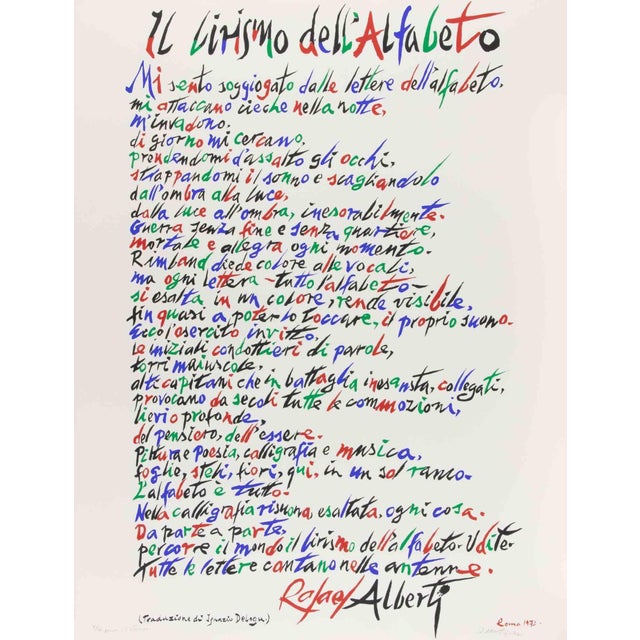 Il lirismo dell'Alfabeto
Mi sento soggiogato dalle lettere dell'alfabeto,
mi attaccano cieche nella notte,
m'invadono.
di giorno mi cercano,
prendendomi d'assalto gli occhi,
strappandomi il sonno e scagliandolo
dall'ombra alla luce,
dalla luce all'ombra, inesorabilmente.
Guerra senza fine e senza quartiere,
mortale e allegra, ogni momento.
Rimbaud diede colore alle vocali,
ma ogni lettera - tutto l'alfabeto -
si esalta in un colore, rende visibile,
fin quasi a poterlo toccare, il proprio suono.
Ecco l'esercito invitto,
le iniziali condottieri di parole,
torri maiuscole,
alti capitani che in battaglia inesausta, collegati,
provocano da secoli tutte le commozioni,
lievi o profonde,
del pensiero, dell'essere.
Pittura e poesia, calligrafia e musica,
foglie, steli, fiori, qui, in un sol ramo.
L'alfabeto è tutto.
Nella calligrafia risuona, esaltata, ogni cosa.
Da parte a parte,
percorre il mondo il lirismo dell'alfabeto. Udite.
Tutte le lettere cantano nelle antenne.
Rafael Alberti
(Traduzione di Ignazio Delogu)
Roma 1972